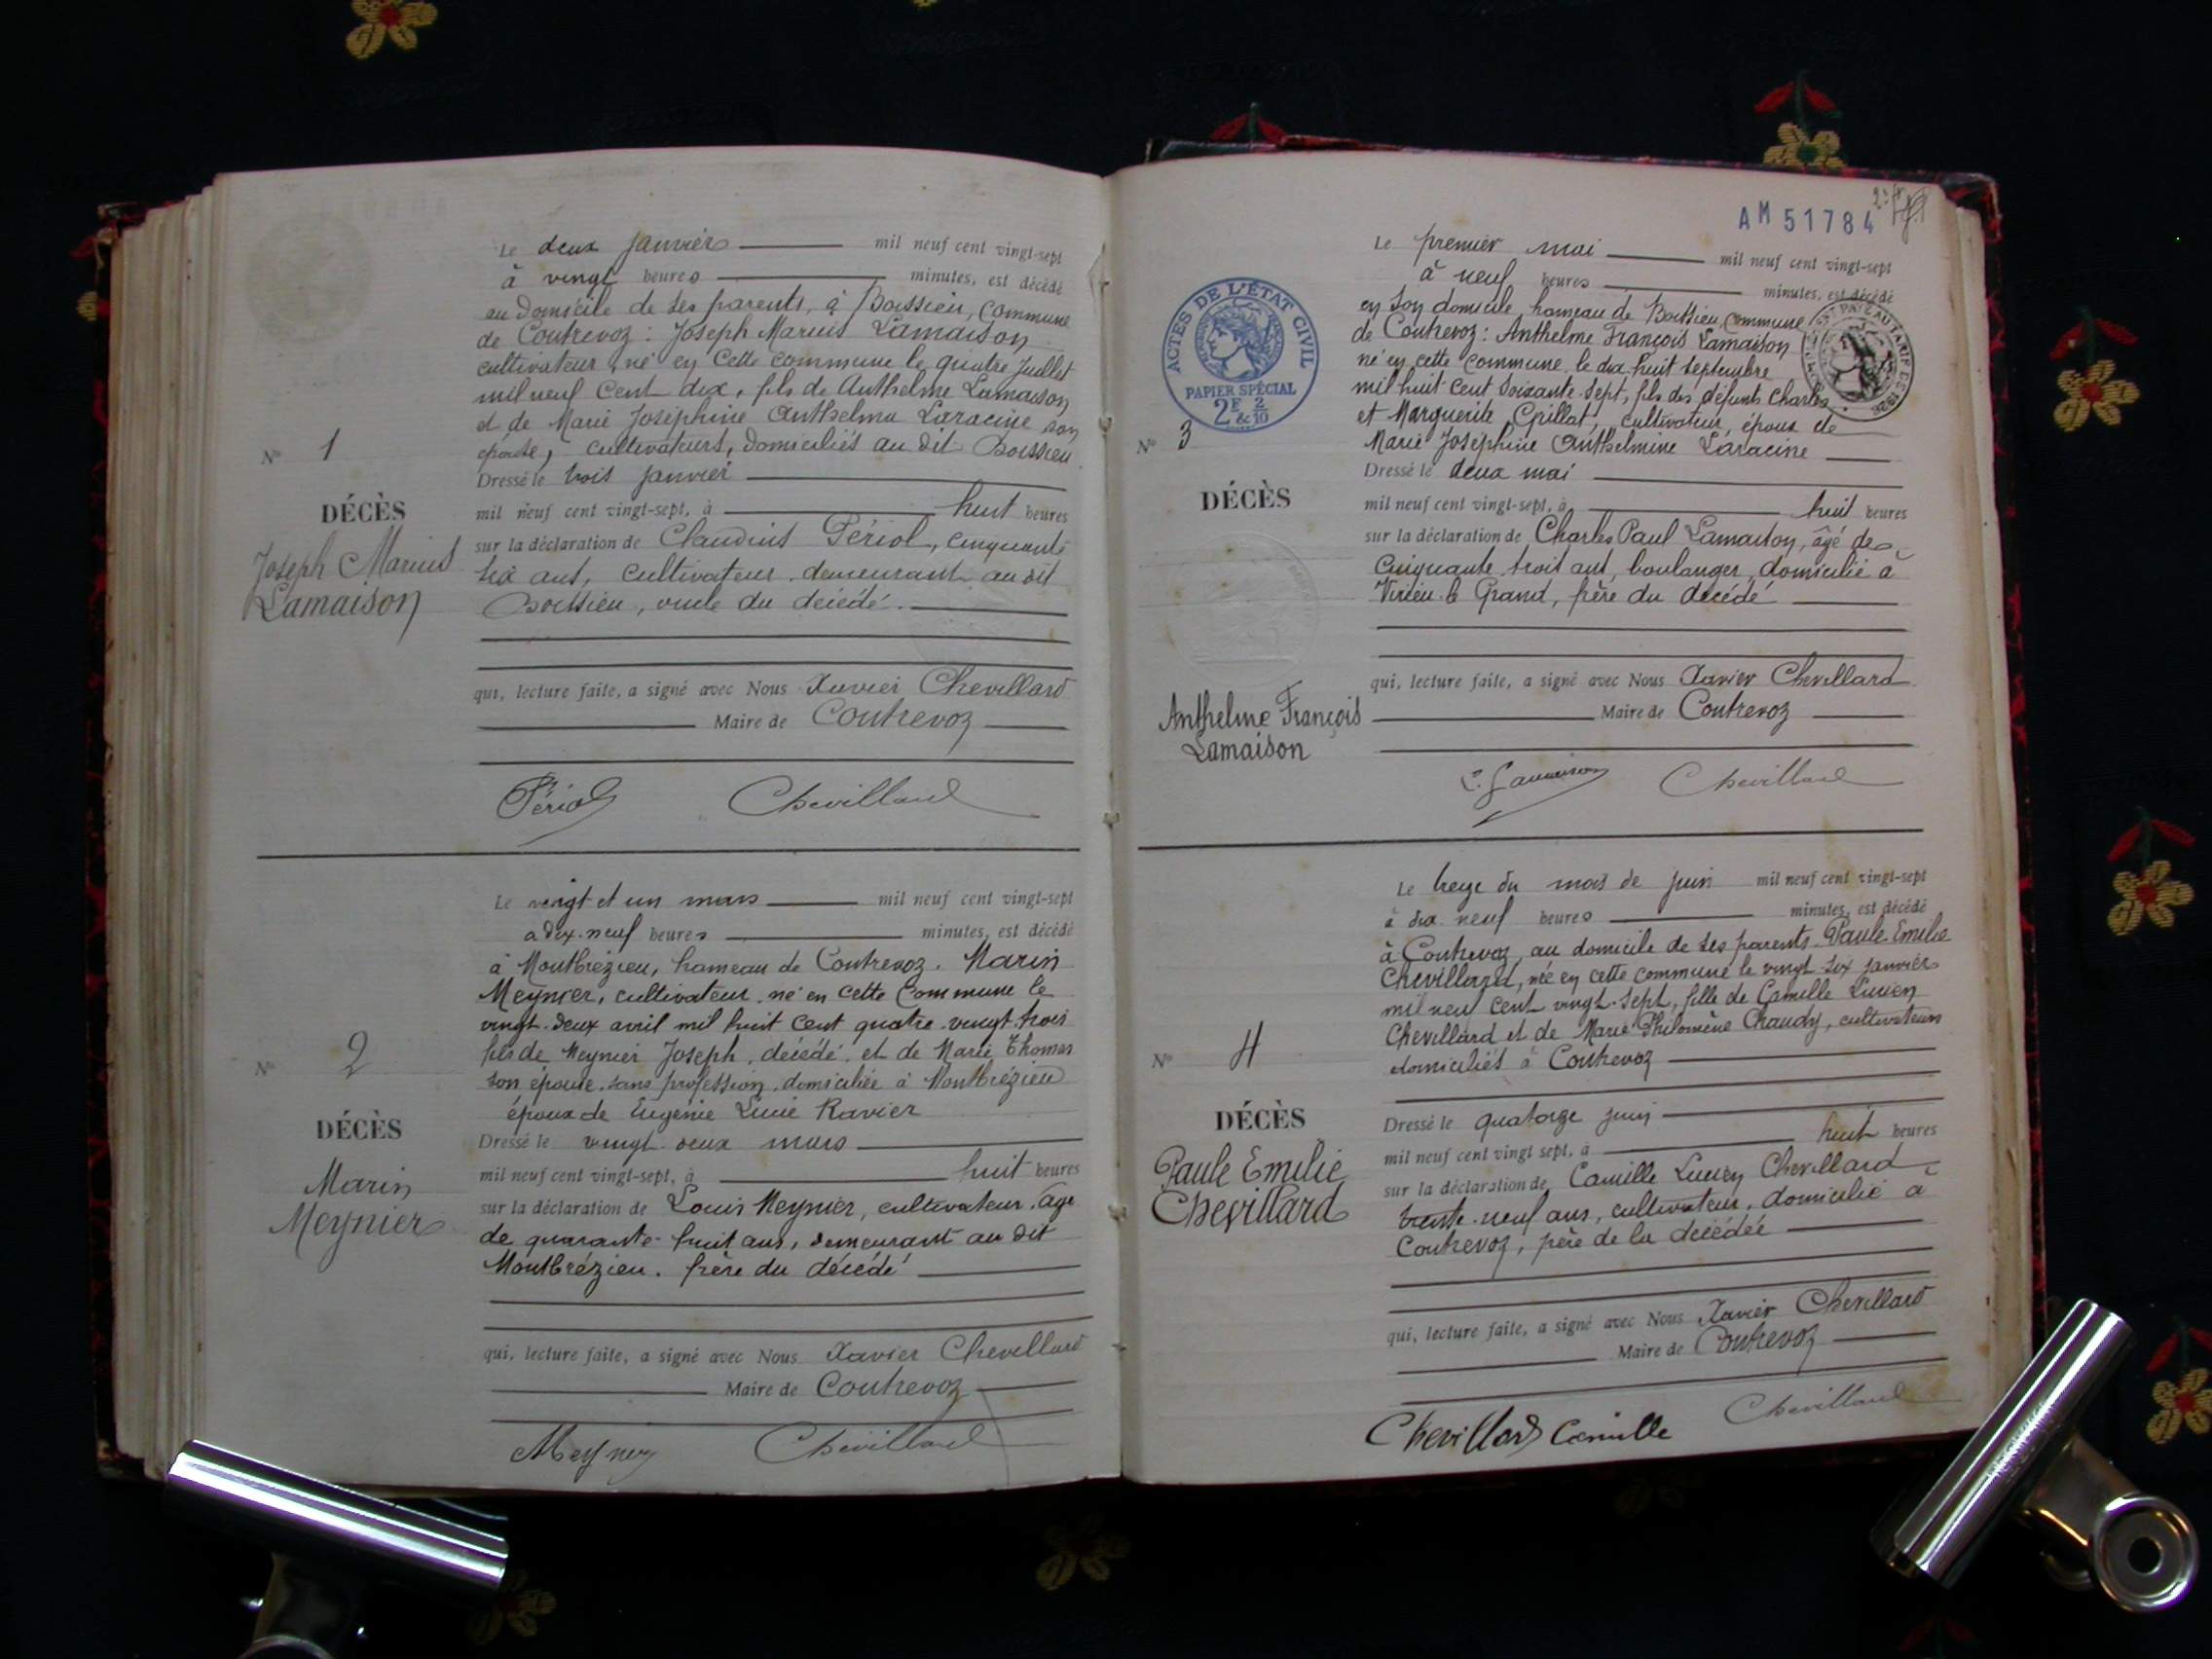 Le deux janvier mil neuf cent vingt-sept
à vingt heures minutes, est décédé
au domicile de ses parents, à Boissieu, commune
de Contrevoz : Joseph Marius Lamaison
cultivateur, né en cette commune le quatre Juillet
mil neuf cent dix, fils de Anthelme Lamaison
et de Marie Joséphine Anthelma Laracine son
épouse, cultivateurs, domiciliés au dit Boissieu
N° 1
Dressé le trois janvier
DÉCÈS
mil neuf cent vingt-sept, à huit heures
Joseph Marius
Lamaison
sur la déclaration de Claudius Périol, cinquante
six ans, cultivateur, demeurant au dit
Boissieu, oncle du décédé.
qui, lecture faite, a signé avec Nous Xavier Chevillard
Maire de Contrevoz
Périol Chevillard
Le vingt et un mars mil neuf cent vingt-sept
à dix-neuf heures minutes, est décédé
à Montbrézieu, hameau de Contrevoz. Marin
Meynier, cultivateur, né en cette commune le
vingt-deux avril mil huit cent quatre-vingt-trois
fils de Meynier Joseph, décédé, et de Marie Thomas
son épouse, sans profession, domiciliée à Montbrézieu
époux de Eugénie Lucie Ravier
N° 2
Dressé le vingt-deux mars
DÉCÈS
mil neuf cent vingt-sept, à huit heures
Marin
Meynier
sur la déclaration de Louis Meynier, cultivateur, âgé
de quarante-huit ans, demeurant au dit
Montbrézieu. frère du décédé
qui, lecture faite, a signé avec Nous Xavier Chevillard
Maire de Contrevoz
Meynier Chevillard
AM 51784
Le premier mai mil neuf cent vingt-sept
à neuf heures minutes, est décédé
en son domicile hameau de Boissieu, commune
de Contrevoz : Anthelme François Lamaison
né en cette commune le dix huit septembre
mil huit cent soixante-sept, fils des défunts Charles
et Marguerite Grillat, cultivateur, époux de
Marie Joséphine Anthelmine Laracine
ACTES DE L'ÉTAT CIVIL
PAPIER SPÉCIAL
2F & 2/10
N° 3
Dressé le deux mai
DÉCÈS
mil neuf cent vingt-sept, à huit heures
sur la déclaration de Charles Paul Lamaison, âgé de
cinquante-trois ans, boulanger, domicilié à
Virieu-le-Grand, frère du décédé
qui, lecture faite, a signé avec Nous Xavier Chevillard
Maire de Contrevoz
Anthelme François
Lamaison
C. Lamaison Chevillard
Le treize du mois de juin mil neuf cent vingt-sept
à dix-neuf heures minutes, est décédé
à Contrevoz, au domicile de ses parents. Paule Emilie
Chevillard, née en cette commune le vingt-six janvier
mil neuf cent vingt-sept, fille de Camille Lucien
Chevillard et de Marie Philomène Chaudy, cultivateurs
domiciliés à Contrevoz
N° 4
Dressé le quatorze juin
DÉCÈS
mil neuf cent vingt sept, à huit heures
Paule Emilie
Chevillard
sur la déclaration de Camille Lucien Chevillard,
trente-neuf ans, cultivateur, domicilié à
Contrevoz, père de la décédée
qui, lecture faite, a signé avec Nous Xavier Chevillard
Maire de Contrevoz
Chevillard Camille Chevillard